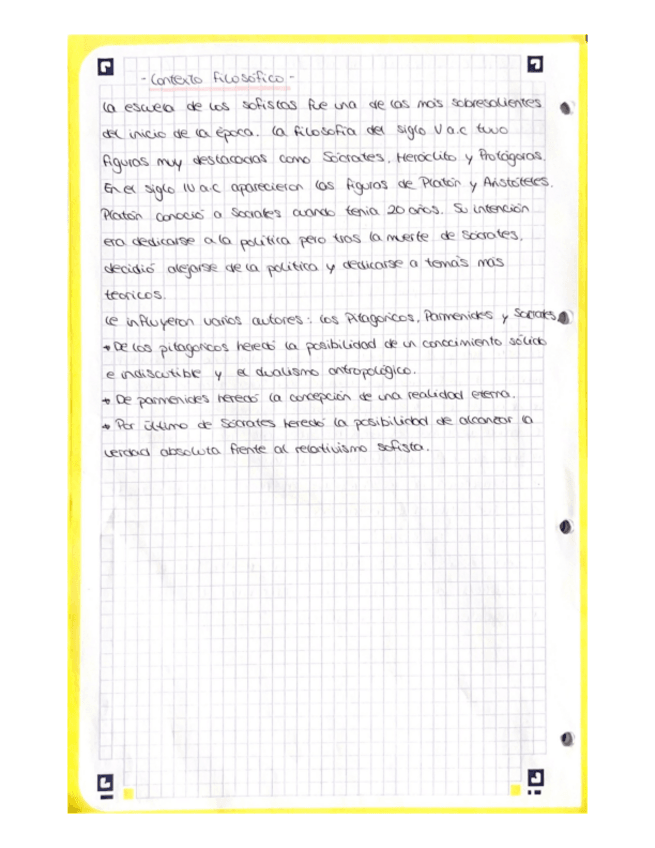 - Contexto filosófico -
La escuela de los sofistas fue una de las más sobresalientes
del inicio de la época. La filosofía del siglo V a.c tuvo
figuras muy destacadas como Sócrates, Heráclito y Protágoras.
En el siglo IV a.c aparecieron las figuras de Platón y Aristóteles.
Platón conoció a Socrates cuando tenia 20 años. Su intención
era dedicarse a la política pero tras la muerte de Sócrates,
decidió alejarse de la política y dedicarse a temas más
teóricos.
Le influyeron varios autores: los Pitagoricos, Parmenides y Socrates
* De los pitagoricos heredó la posibilidad de un conocimiento sólido
e indiscutible y el dualismo antropológico.
* De parmenides heredó la concepción de una realidad eterna.
* Por último de Sócrates heredó la posibilidad de alcanzar la
verdad absoluta frente al relativismo sofista.